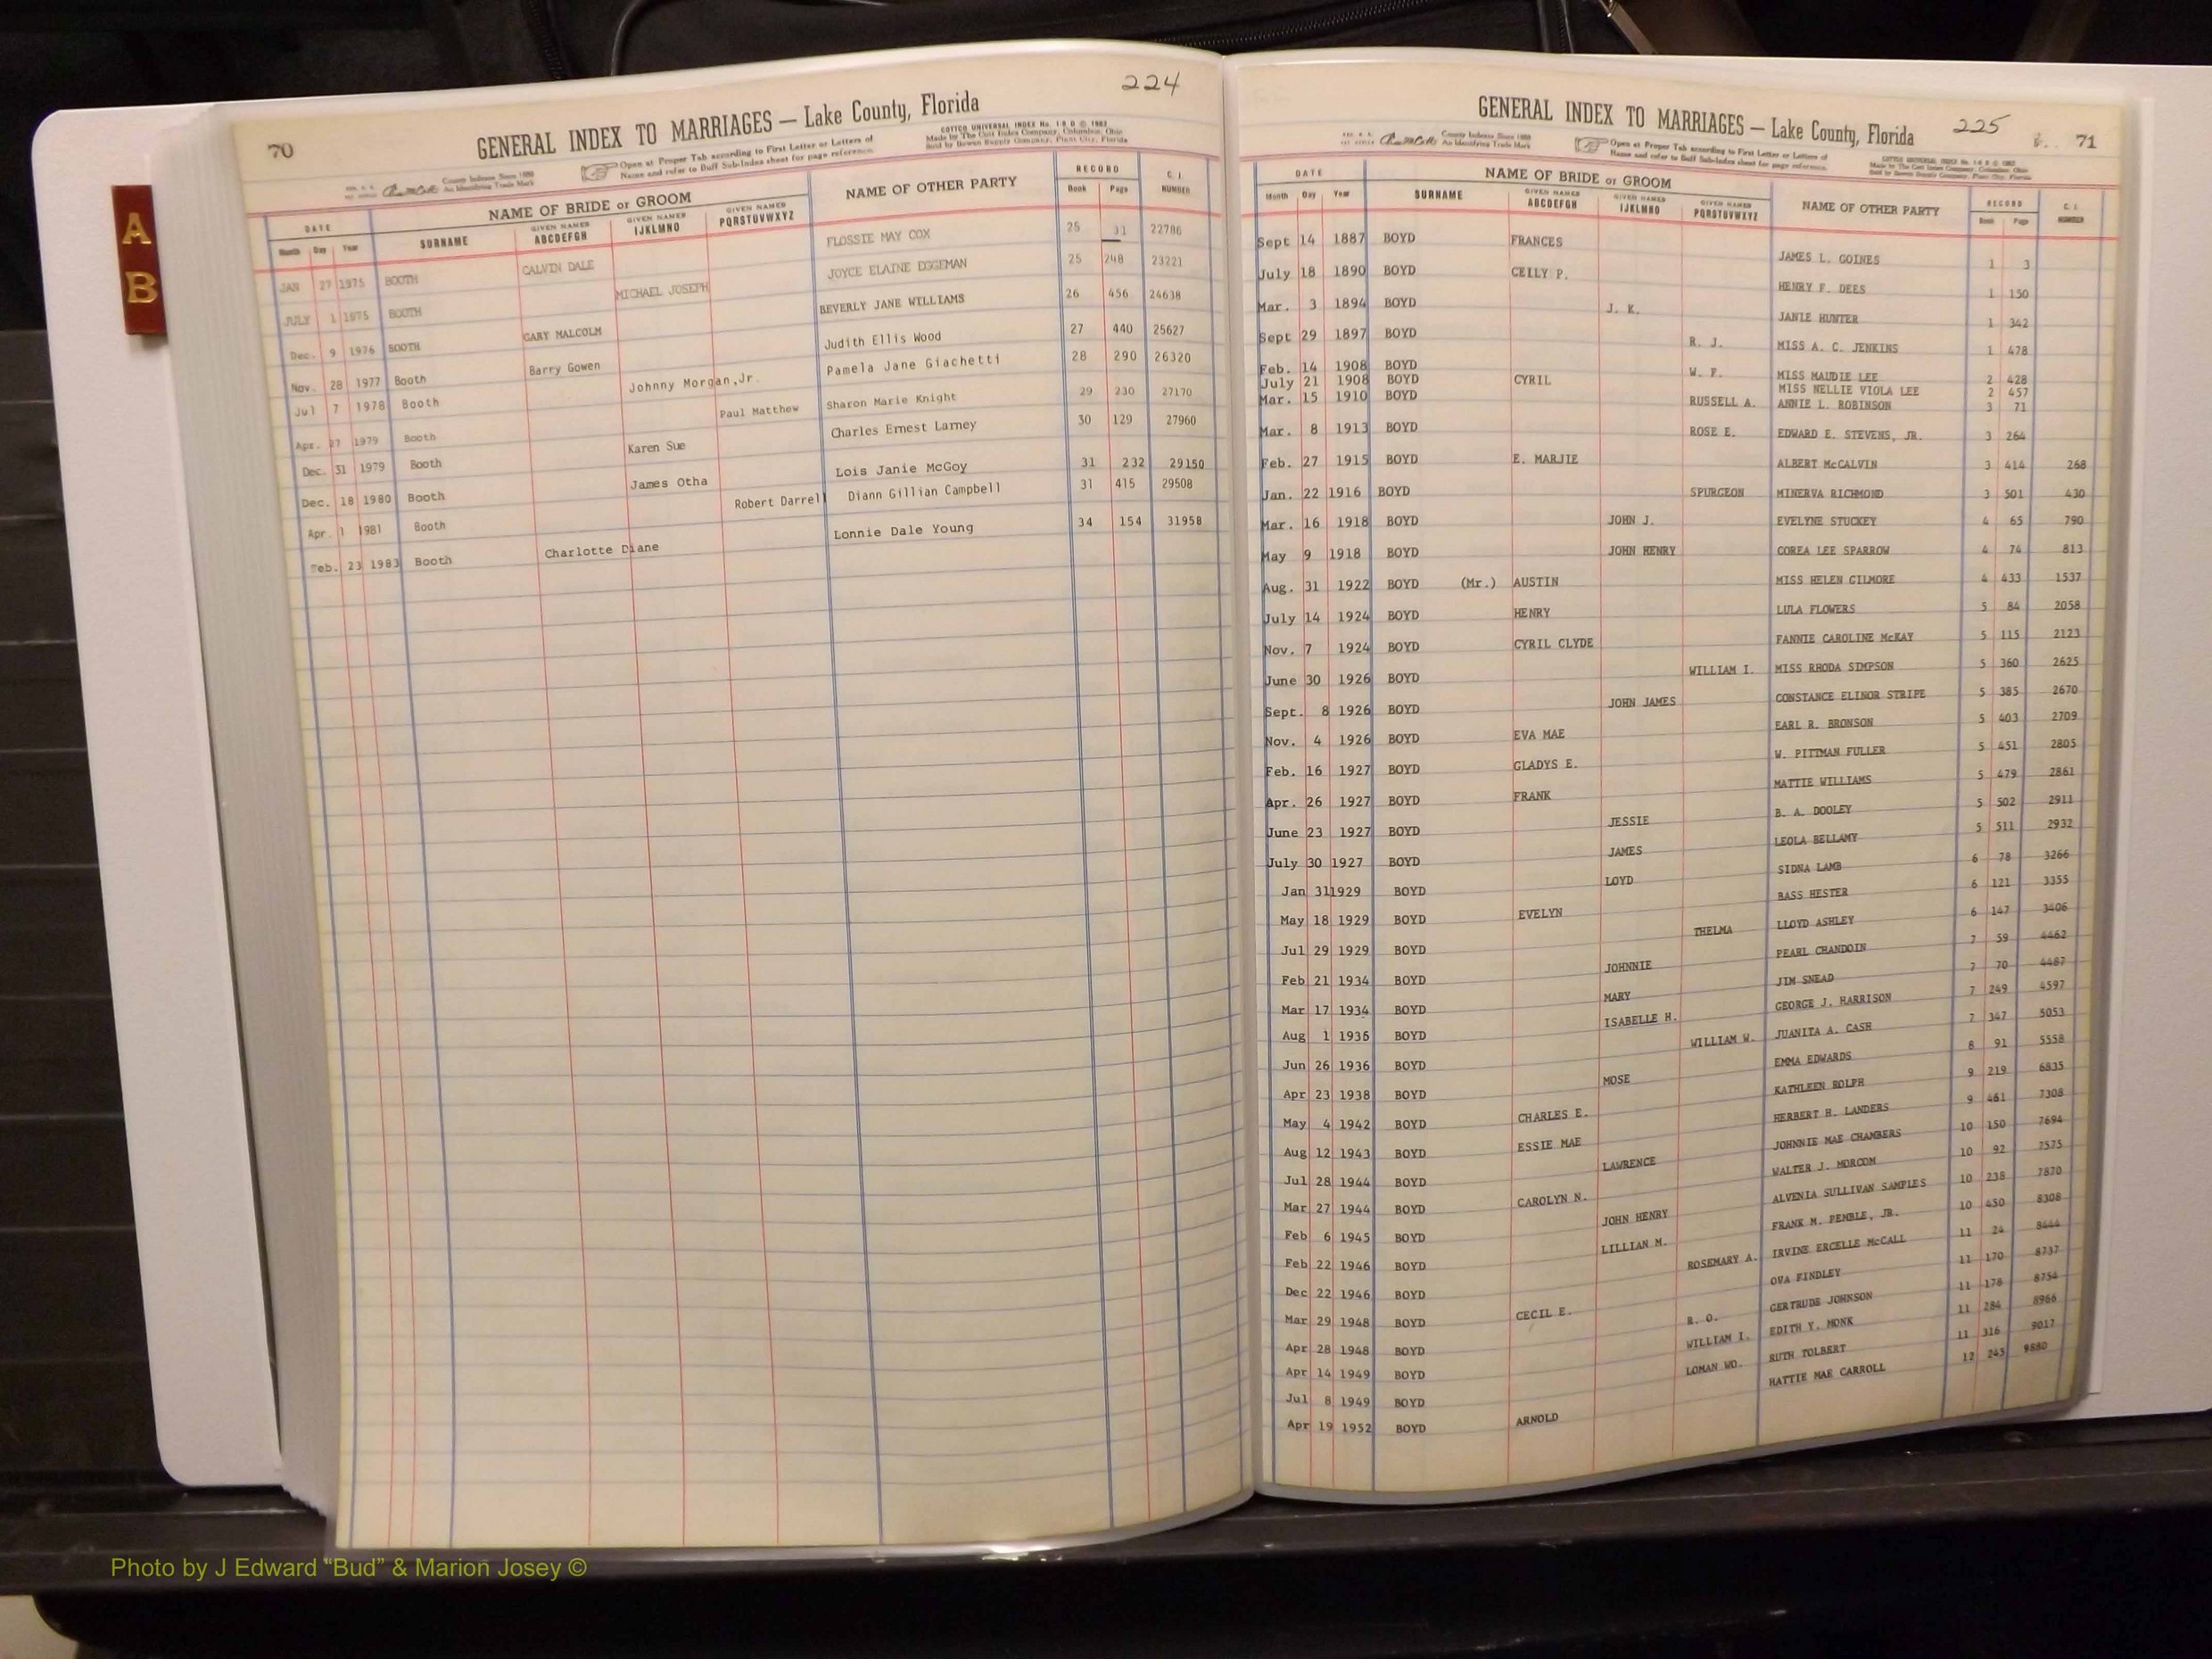 A
B
70
224
GENERAL INDEX TO MARRIAGES — Lake County, Florida
County Indexes Since 1888
An Identifying Trade Mark
Open at Proper Tab according to First Letter or Letters of
Name and refer to Buff Sub-Index sheet for page reference.
COTTCO UNIVERSAL INDEX No. 1-S D © 1962
Made by The Cott Index Company, Columbus, Ohio
Sold by Bowen Supply Company, Plant City, Florida
DATE NAME OF BRIDE or GROOM NAME OF OTHER PARTY RECORD C. I. NUMBER
Month Day Year SURNAME GIVEN NAMES ABCDEFGH GIVEN NAMES IJKLMNO GIVEN NAMES PQRSTUVWXYZ Book Page
JAN 27 1975 BOOTH CALVIN DALE FLOSSIE MAY COX 25 31 22786
JULY 1 1975 BOOTH MICHAEL JOSEPH JOYCE ELAINE EGGEMAN 25 248 23221
Dec. 9 1976 BOOTH GARY MALCOLM BEVERLY JANE WILLIAMS 26 456 24638
Nov. 28 1977 Booth Barry Gowen Judith Ellis Wood 27 440 25627
Jul 7 1978 Booth Johnny Morgan,Jr. Pamela Jane Giachetti 28 290 26320
Apr. 27 1979 Booth Paul Matthew Sharon Marie Knight 29 230 27170
Dec. 31 1979 Booth Karen Sue Charles Ernest Larney 30 129 27960
Dec. 18 1980 Booth James Otha Lois Janie McGoy 31 232 29150
Apr. 1 1981 Booth Robert Darrell Diann Gillian Campbell 31 415 29508
Feb. 23 1983 Booth Charlotte Diane Lonnie Dale Young 34 154 31958
GENERAL INDEX TO MARRIAGES — Lake County, Florida
225
71
County Indexes Since 1888
An Identifying Trade Mark
Open at Proper Tab according to First Letter or Letters of
Name and refer to Buff Sub-Index sheet for page reference.
COTTCO UNIVERSAL INDEX No. 1-S D © 1962
Made by The Cott Index Company, Columbus, Ohio
Sold by Bowen Supply Company, Plant City, Florida
DATE NAME OF BRIDE or GROOM NAME OF OTHER PARTY RECORD C. I. NUMBER
Month Day Year SURNAME GIVEN NAMES ABCDEFGH GIVEN NAMES IJKLMNO GIVEN NAMES PQRSTUVWXYZ Book Page
Sept 14 1887 BOYD FRANCES JAMES L. GOINES 1 3
July 18 1890 BOYD CEILY P. HENRY F. DEES 1 150
Mar. 3 1894 BOYD J. K. JANIE HUNTER 1 342
Sept 29 1897 BOYD R. J. MISS A. C. JENKINS 1 478
Feb. 14 1908 BOYD W. F. MISS MAUDIE LEE 2 428
July 21 1908 BOYD CYRIL MISS NELLIE VIOLA LEE 2 457
Mar. 15 1910 BOYD RUSSELL A. ANNIE L. ROBINSON 3 71
Mar. 8 1913 BOYD ROSE E. EDWARD E. STEVENS, JR. 3 264
Feb. 27 1915 BOYD E. MARJIE ALBERT McCALVIN 3 414 268
Jan. 22 1916 BOYD SPURGEON MINERVA RICHMOND 3 501 430
Mar. 16 1918 BOYD JOHN J. EVELYNE STUCKEY 4 65 790
May 9 1918 BOYD JOHN HENRY COREA LEE SPARROW 4 74 813
Aug. 31 1922 BOYD (Mr.) AUSTIN MISS HELEN GILMORE 4 433 1537
July 14 1924 BOYD HENRY LULA FLOWERS 5 84 2058
Nov. 7 1924 BOYD CYRIL CLYDE FANNIE CAROLINE McKAY 5 115 2123
June 30 1926 BOYD WILLIAM I. MISS RHODA SIMPSON 5 360 2625
Sept. 8 1926 BOYD JOHN JAMES CONSTANCE ELINOR STRIPE 5 385 2670
Nov. 4 1926 BOYD EVA MAE EARL R. BRONSON 5 403 2709
Feb. 16 1927 BOYD GLADYS E. W. PITTMAN FULLER 5 451 2805
Apr. 26 1927 BOYD FRANK MATTIE WILLIAMS 5 479 2861
June 23 1927 BOYD JESSIE B. A. DOOLEY 5 502 2911
July 30 1927 BOYD JAMES LEOLA BELLAMY 5 511 2932
Jan 31 1929 BOYD LOYD SIDNA LAMB 6 78 3266
May 18 1929 BOYD EVELYN BASS HESTER 6 121 3355
Jul 29 1929 BOYD THELMA LLOYD ASHLEY 6 147 3406
Feb 21 1934 BOYD JOHNNIE PEARL CHANDOIN 7 59 4462
Mar 17 1934 BOYD MARY JIM SNEAD 7 70 4487
Aug 1 1936 BOYD ISABELLE H. GEORGE J. HARRISON 7 249 4597
Jun 26 1936 BOYD WILLIAM W. JUANITA A. CASH 7 347 5053
Apr 23 1938 BOYD MOSE EMMA EDWARDS 8 91 5558
May 4 1942 BOYD CHARLES E. KATHLEEN ROLPH 9 219 6835
Aug 12 1943 BOYD ESSIE MAE HERBERT H. LANDERS 9 461 7308
Jul 28 1944 BOYD LAWRENCE JOHNNIE MAE CHAMBERS 10 150 7694
Mar 27 1944 BOYD CAROLYN N. WALTER J. MORCOM 10 92 7575
Feb 6 1945 BOYD JOHN HENRY ALVENIA SULLIVAN SAMPLES 10 238 7870
Feb 22 1946 BOYD LILLIAN M. FRANK M. PEMBLE, JR. 10 450 8308
Dec 22 1946 BOYD ROSEMARY A. IRVINE ERCELLE McCALL 11 24 8444
Mar 29 1948 BOYD CECIL E. OVA FINDLEY 11 170 8737
Apr 28 1948 BOYD R. O. GERTRUDE JOHNSON 11 178 8754
Apr 14 1949 BOYD WILLIAM I. EDITH Y. MONK 11 284 8966
Jul 8 1949 BOYD LOMAN WD. RUTH TOLBERT 11 316 9017
Apr 19 1952 BOYD ARNOLD HATTIE MAE CARROLL 12 245 9880
Photo by J Edward “Bud” & Marion Josey ©